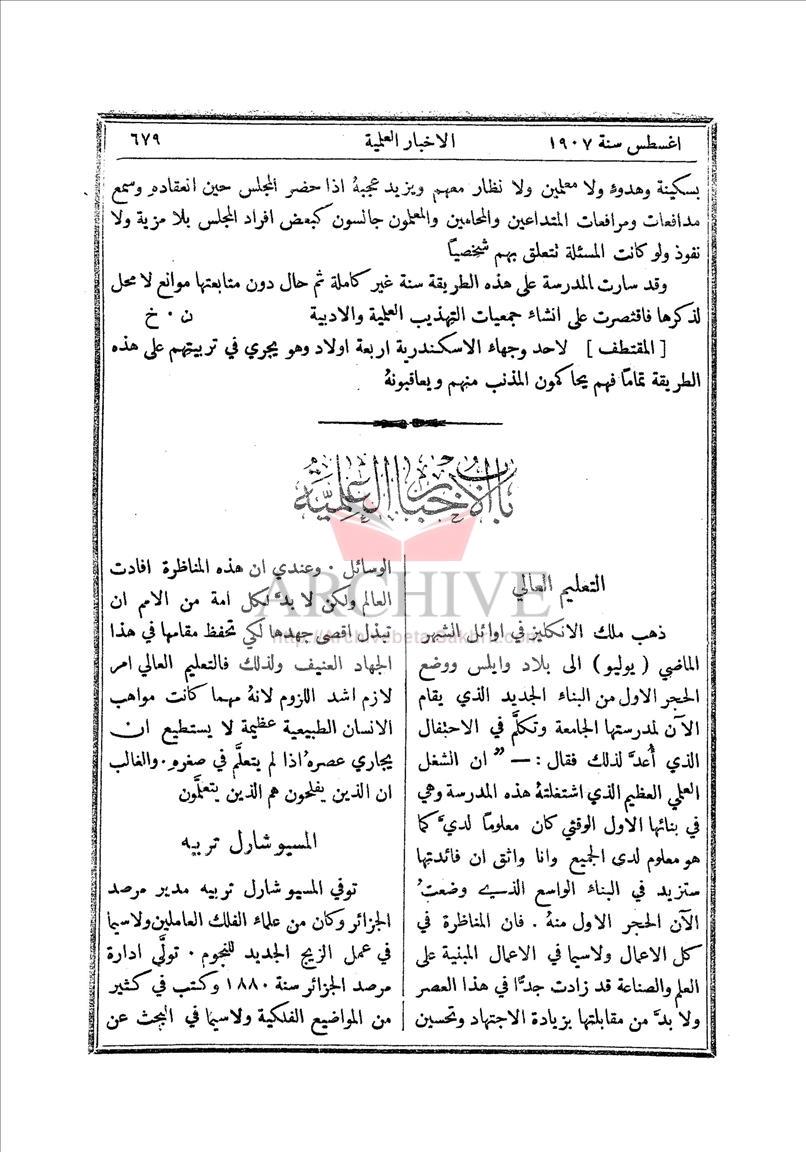 اغسطس سنة ١٩٠٧
الاخبار العلمية
٦٧٩
بسكينة وهدوء ولا معلمين ولا نظار معهم ويزيد عجبهُ اذا حضر المجلس حين انعقاده وسمع
مدافعات ومرافعات المتداعين والمحامين والمعلمون جالسون كبعض افراد المجلس بلا مزية ولا
نفوذ ولو كانت المسئلة تتعلق بهم شخصيًّا
وقد سارت المدرسة على هذه الطريقة سنة غير كاملة ثم حال دون متابعتها موانع لا محل
لذكرها فاقتصرت على انشاء جمعيات التهذيب العلمية والادبية ن . خ
[ المقتطف ] لاحد وجهاء الاسكندرية اربعة اولاد وهو يجري في تربيتهم على هذه
الطريقة تمامًا فهم يحاكمون المذنب منهم ويعاقبونهُ
باب الاخبار العلمية
التعليم العالي
ذهب ملك الانكليز في اوائل الشهر
الماضي ( يوليو ) الى بلاد وايلس ووضع
الحجر الاول من البناء الجديد الذي يقام
الآن لمدرستها الجامعة وتكلَّم في الاحتفال
الذي أُعدَّ لذلك فقال : — ” ان الشغل
العلمي العظيم الذي اشتغلتهُ هذه المدرسة وهي
في بنائها الاول الوقتي كان معلومًا لديَّ كما
هو معلوم لدى الجميع وانا واثق ان فائدتها
ستزيد في البناء الواسع الذي وضعتُ
الآن الحجر الاول منهُ . فان المناظرة في
كل الاعمال ولاسيما في الاعمال المبنية على
العلم والصناعة قد زادت جدًّا في هذا العصر
ولا بدَّ من مقابلتها بزيادة الاجتهاد وتحسين
الوسائل . وعندي ان هذه المناظرة افادت
العالم ولكن لا بدَّ لكل امة من الامم ان
تبذل اقصى جهدها لكي تحفظ مقامها في هذا
الجهاد العنيف ولذلك فالتعليم العالي امر
لازم اشد اللزوم لانهُ مهما كانت مواهب
الانسان الطبيعية عظيمة لا يستطيع ان
يجاري عصرهُ اذا لم يتعلَّم في صغره . والغالب
ان الذين يفلحون هم الذين يتعلَّمون
المسيو شارل تربيه
توفي المسيو شارل تربيه مدير مرصد
الجزائر وكان من علماء الفلك العاملين ولاسيما
في عمل الزيج الجديد للنجوم . تولَّى ادارة
مرصد الجزائر سنة ١٨٨٠ وكتب في كثير
من المواضيع الفلكية ولاسيما في البحث عن
ARCHIVE